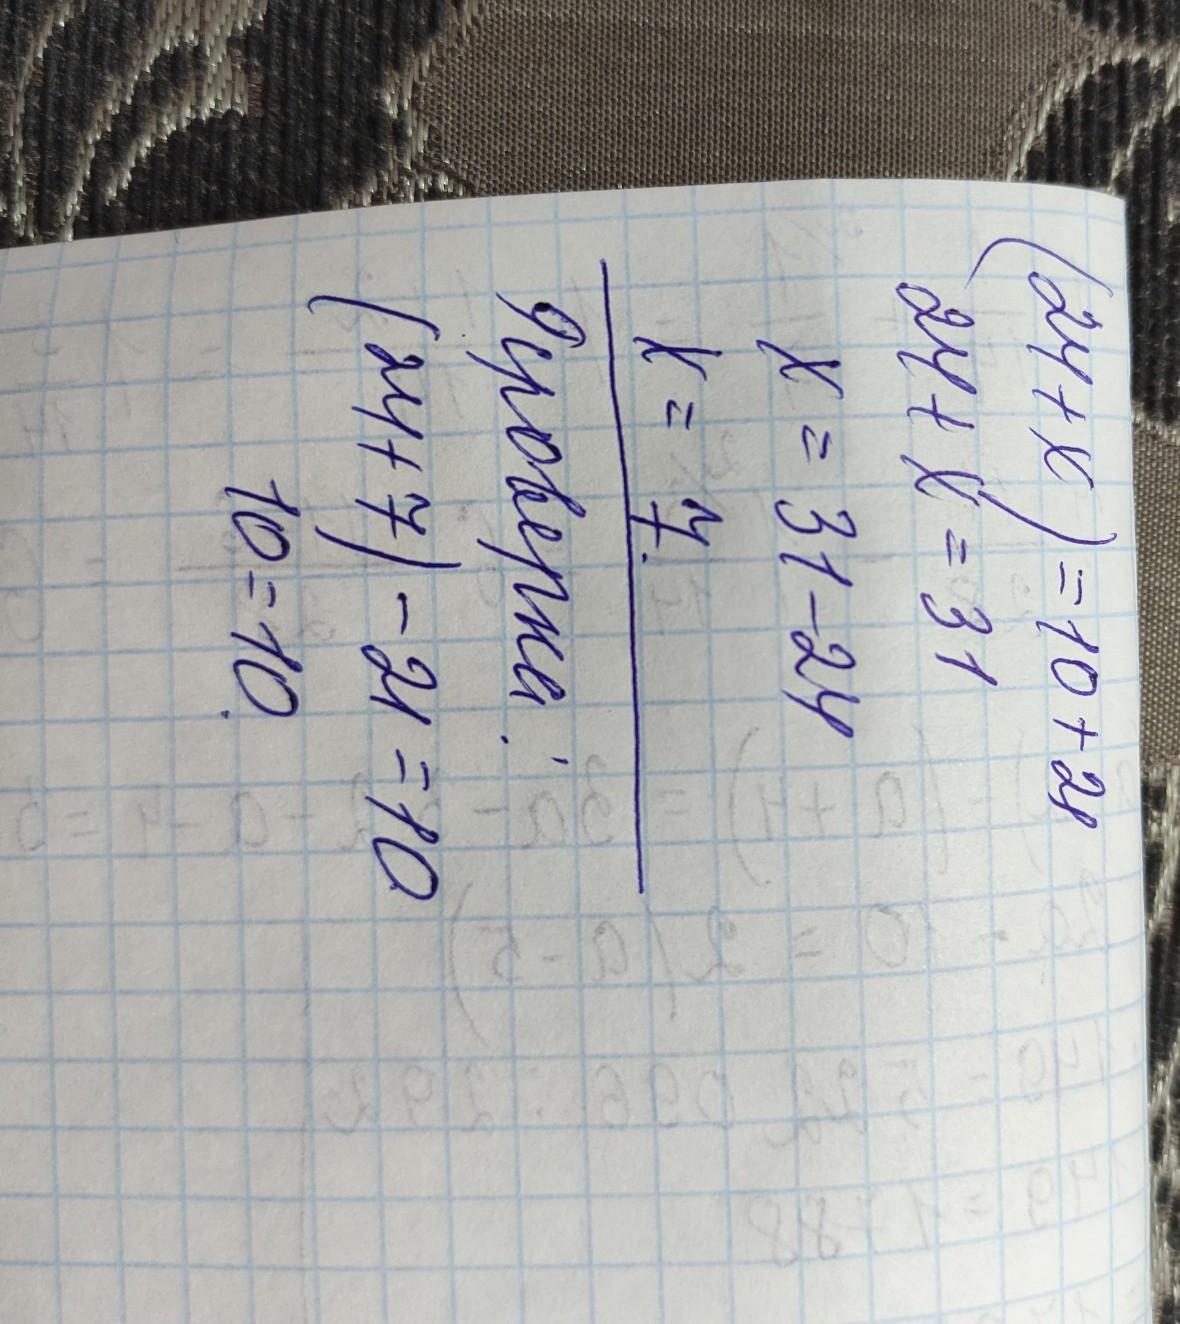 (24+x)=10+21
24+x=31
x=31-24
x=7.
Проверка:
(24+7)-21=10
10=10.